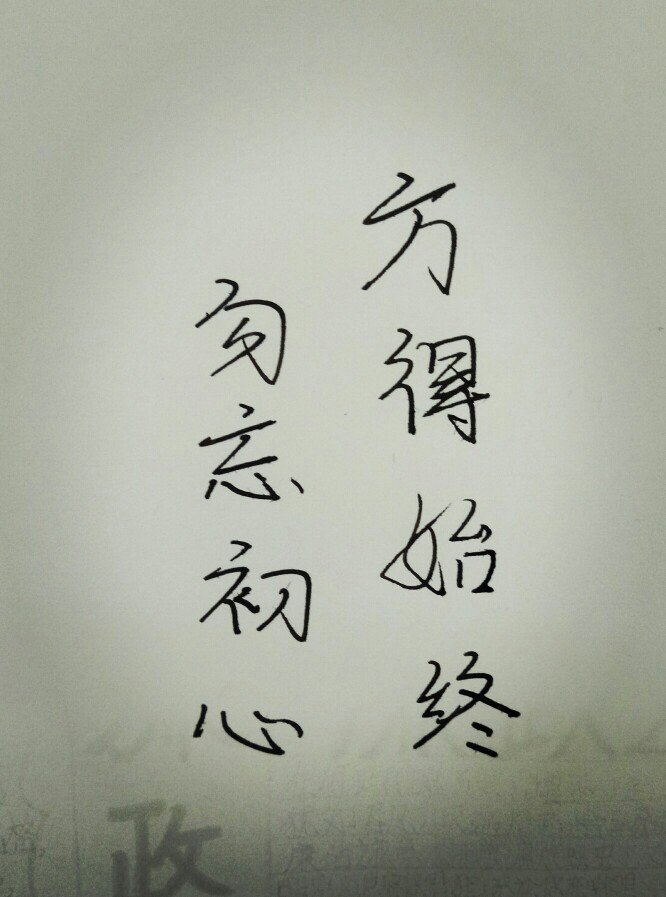 勿忘初心
方得始终
政